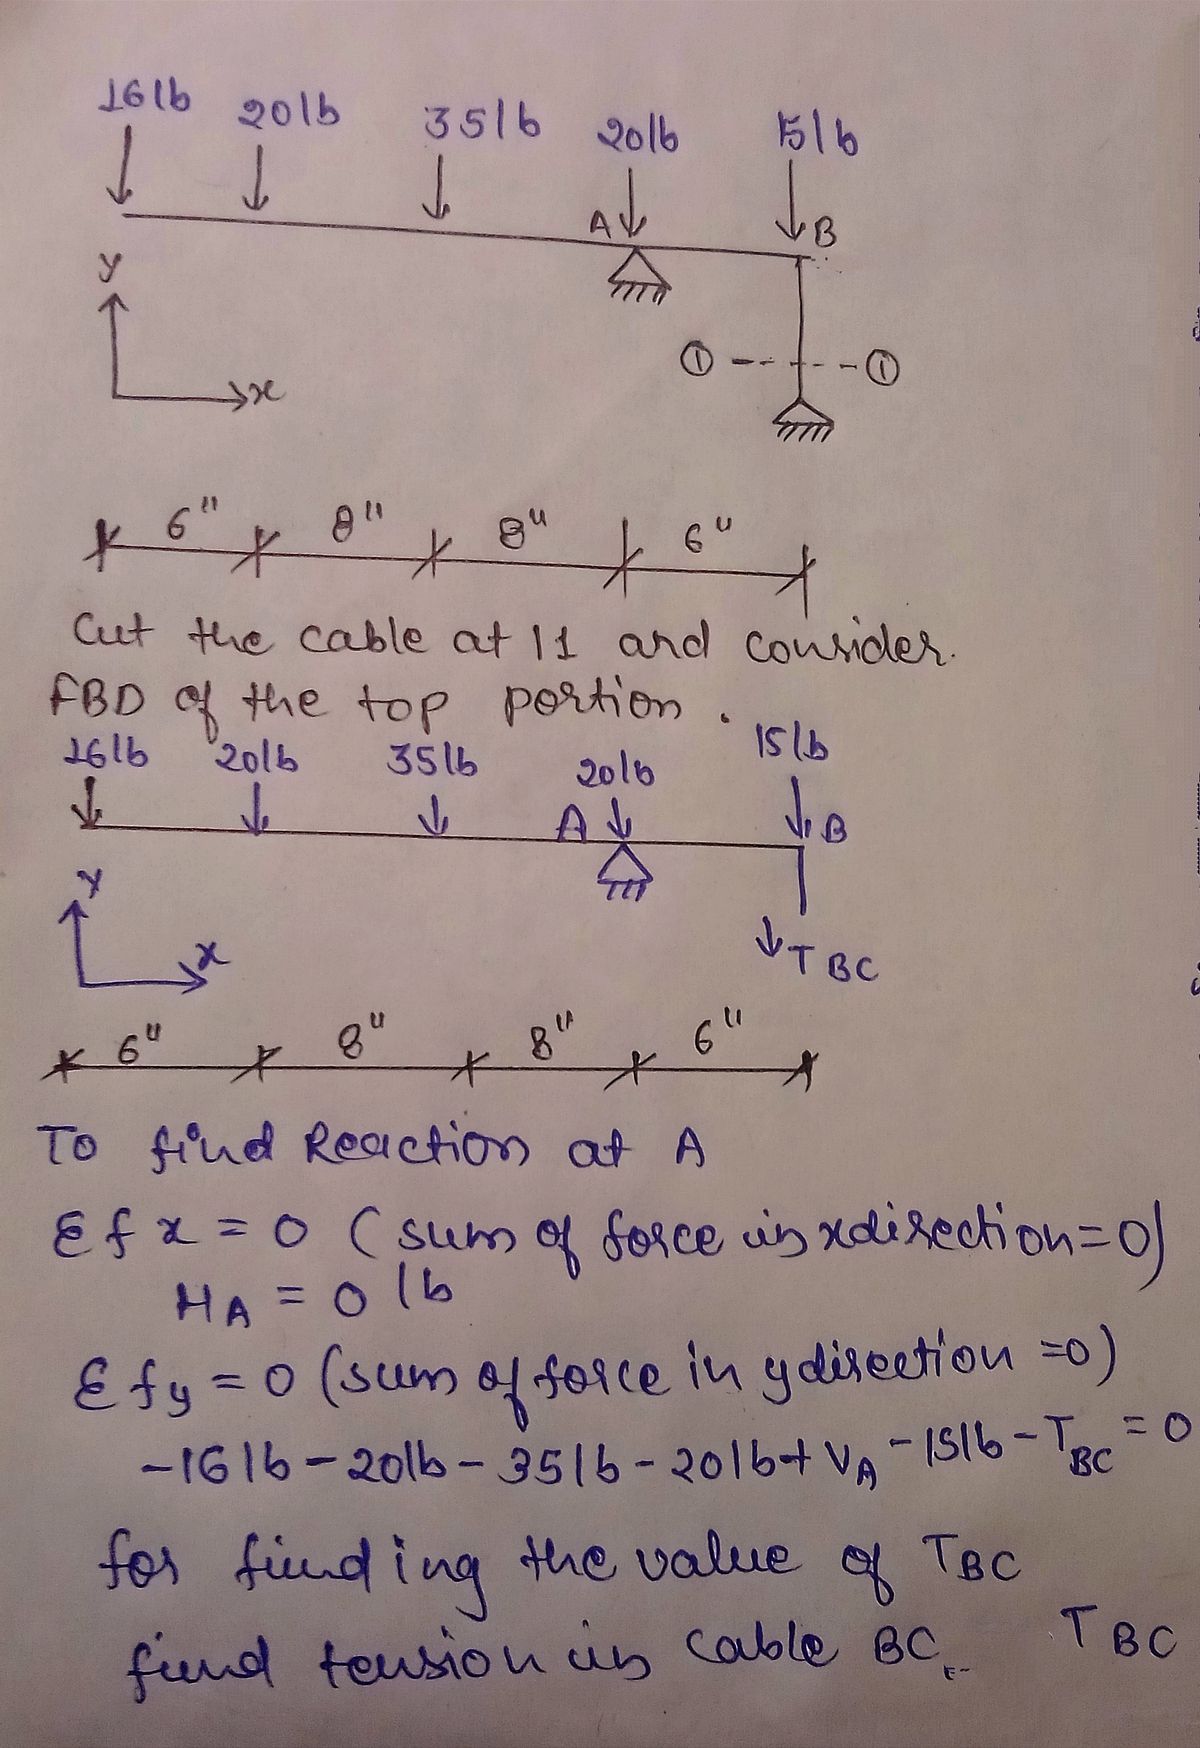 16lb 20lb 35lb 20lb 15lb
A B
y
① ①
x
6" 8" 8" 6"
Cut the cable at 11 and consider.
FBD of the top portion.
16lb 20lb 35lb 20lb 15lb
A B
y
x
T BC
6" 8" 8" 6"
To find Reaction at A
Σfx = 0 (sum of force in xdirection=0)
HA = 0 lb
Σfy = 0 (sum of force in ydirection =0)
-16lb - 20lb - 35lb - 20lb + VA - 15lb - TBC = 0
for finding the value of TBC
find tension in cable BC. TBC